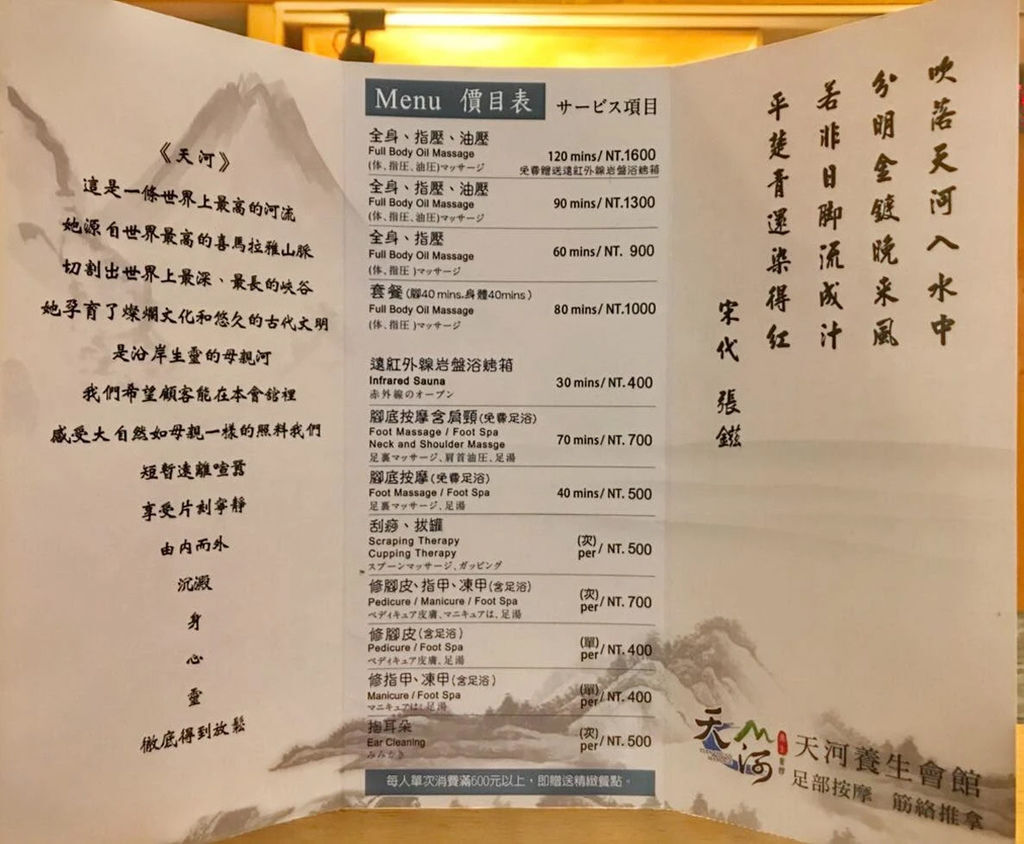 《天河》
這是一條世界上最高的河流
她源自世界最高的喜馬拉雅山脈
切割出世界上最深、最長的峽谷
她孕育了燦爛文化和悠久的古代文明
是沿岸生靈的母親河
我們希望顧客能在本會館裡
感受大自然如母親一樣的照料我們
短暫遠離喧囂
享受片刻寧靜
由內而外
沉澱
身
心
靈
徹底得到放鬆
Menu 價目表 サービス項目
全身、指壓、油壓
Full Body Oil Massage 120 mins/ NT.1600
(体、指圧、油圧)マッサージ 免費贈送遠紅外線岩盤浴烤箱
全身、指壓、油壓
Full Body Oil Massage 90 mins/ NT.1300
(体、指圧、油圧)マッサージ
全身、指壓
Full Body Oil Massage 60 mins/ NT. 900
(体、指圧)マッサージ
套餐(腳40 mins.身體40mins)
Full Body Oil Massage 80 mins/ NT.1000
(体、指圧)マッサージ
遠紅外線岩盤浴烤箱
Infrared Sauna 30 mins/ NT. 400
赤外線のオーブン
腳底按摩含肩頸(免費足浴)
Foot Massage / Foot Spa
Neck and Shoulder Massge 70 mins/ NT. 700
足裏マッサージ、肩首油圧、足湯
腳底按摩(免費足浴)
Foot Massage / Foot Spa 40 mins/ NT. 500
足裏マッサージ、足湯
刮痧、拔罐
Scraping Therapy (次)
Cupping Therapy per/ NT. 500
スプーンマッサージ、ガッピング
修腳皮、指甲、凍甲(含足浴)
Pedicure / Manicure / Foot Spa (次) per/ NT. 700
ペディキュア皮膚、マニキュアは、足湯
修腳皮(含足浴)
Pedicure / Foot Spa (單) per/ NT. 400
ペディキュア皮膚、足湯
修指甲、凍甲(含足浴)
Manicure / Foot Spa (單) per/ NT. 400
マニキュアは、足湯
掏耳朵
Ear Cleaning (次) per/ NT. 500
みみかき
每人單次消費滿600元以上，即贈送精緻餐點。
吹落天河入水中
分明金鍍晚来風
若非日脚流成汁
平楚青還染得紅
宋代 張鎡
天河
天河養生會館
足部按摩 筋絡推拿